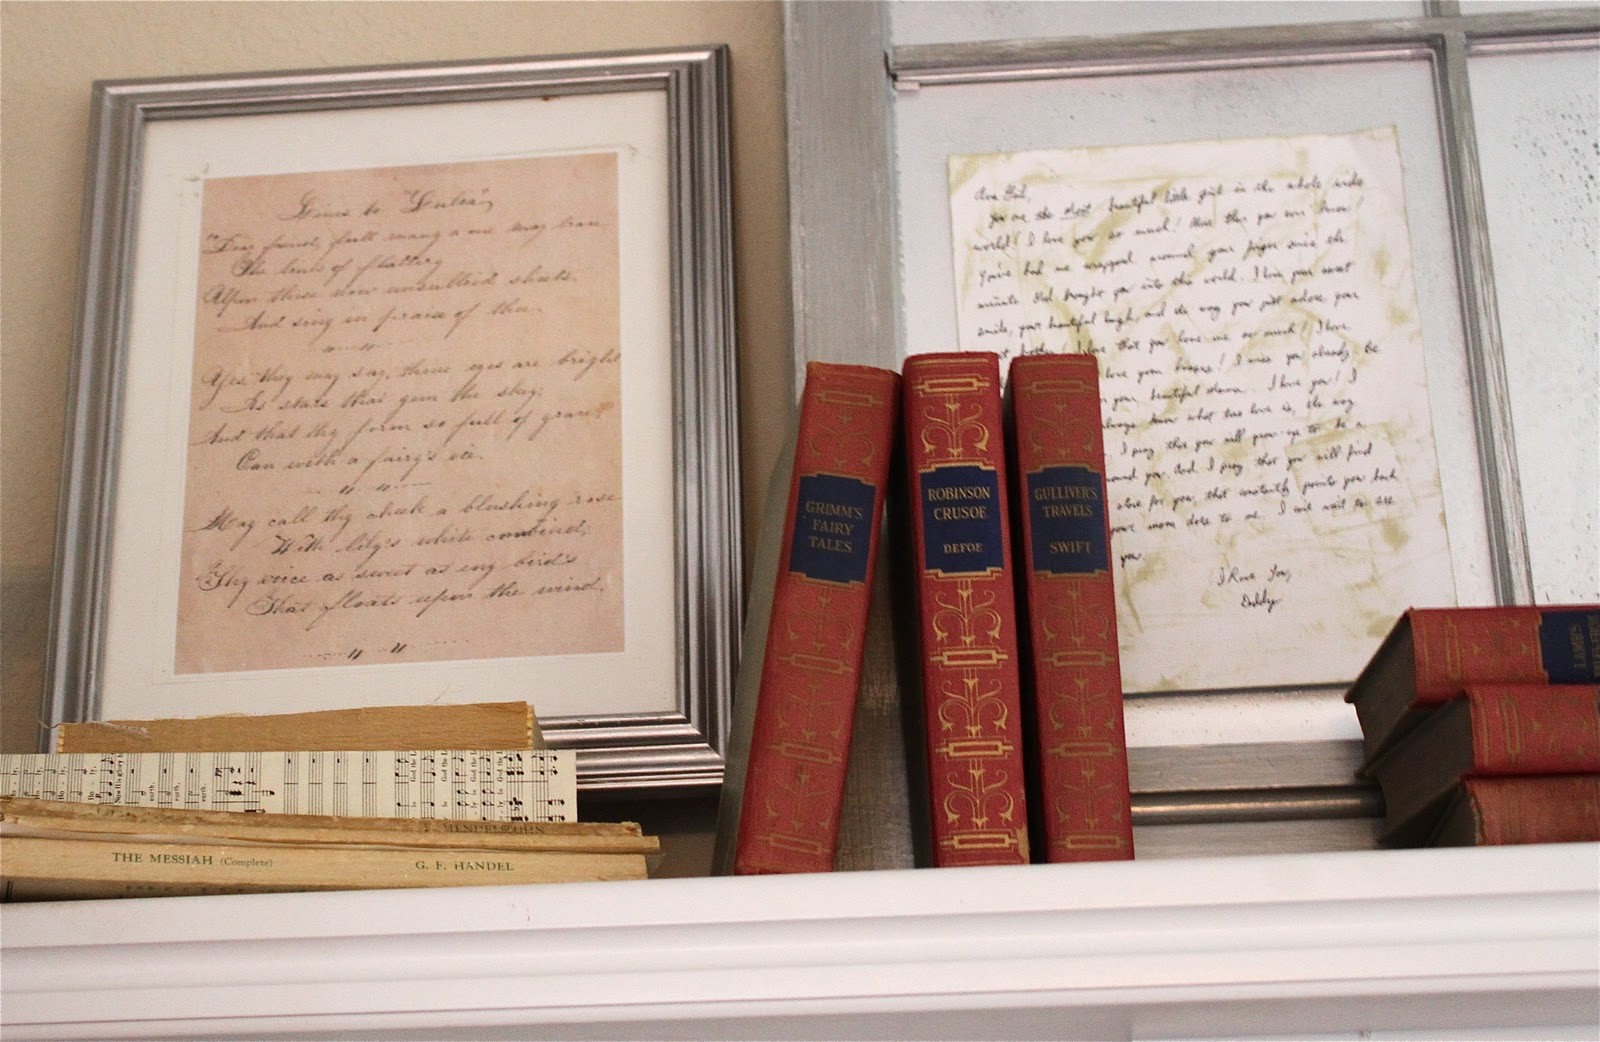 Lines to "Luba",
"Dear friend, full many a one may have
The lines of flattery
Upon these now unsullied sheets.
And sing in praise of thee.
Yes, they may say, thine eyes are bright
As stars that gem the sky;
And that thy form so full of grace
Can with a fairy's vie.
May call thy cheek a blushing rose
With lily's white combined;
Thy voice as sweet as eny bird's
That floats upon the wind.
You are the most beautiful little girl in the whole wide
world! I love you so much! More than you ever know!
You've had me wrapped around your finger since the
minute God brought you into this world. I love your sweet
smile, your beautiful laugh, and the way you just adore your
brother! I love that you love me so much! I love
love your kisses! I miss you already. Be
your beautiful dance. I love you! I
always know what true love is, the way
I pray that you will grow up to be a
around you. And I pray that you will find
else for you, that constantly points you back
your mom does to me. I can't wait to see
you.
I Love You,
Daddy
GRIMM'S
FAIRY
TALES
ROBINSON
CRUSOE
DEFOE
GULLIVER'S
TRAVELS
SWIFT
MENDELSSOHN
THE MESSIAH (Complete) G. F. HANDEL